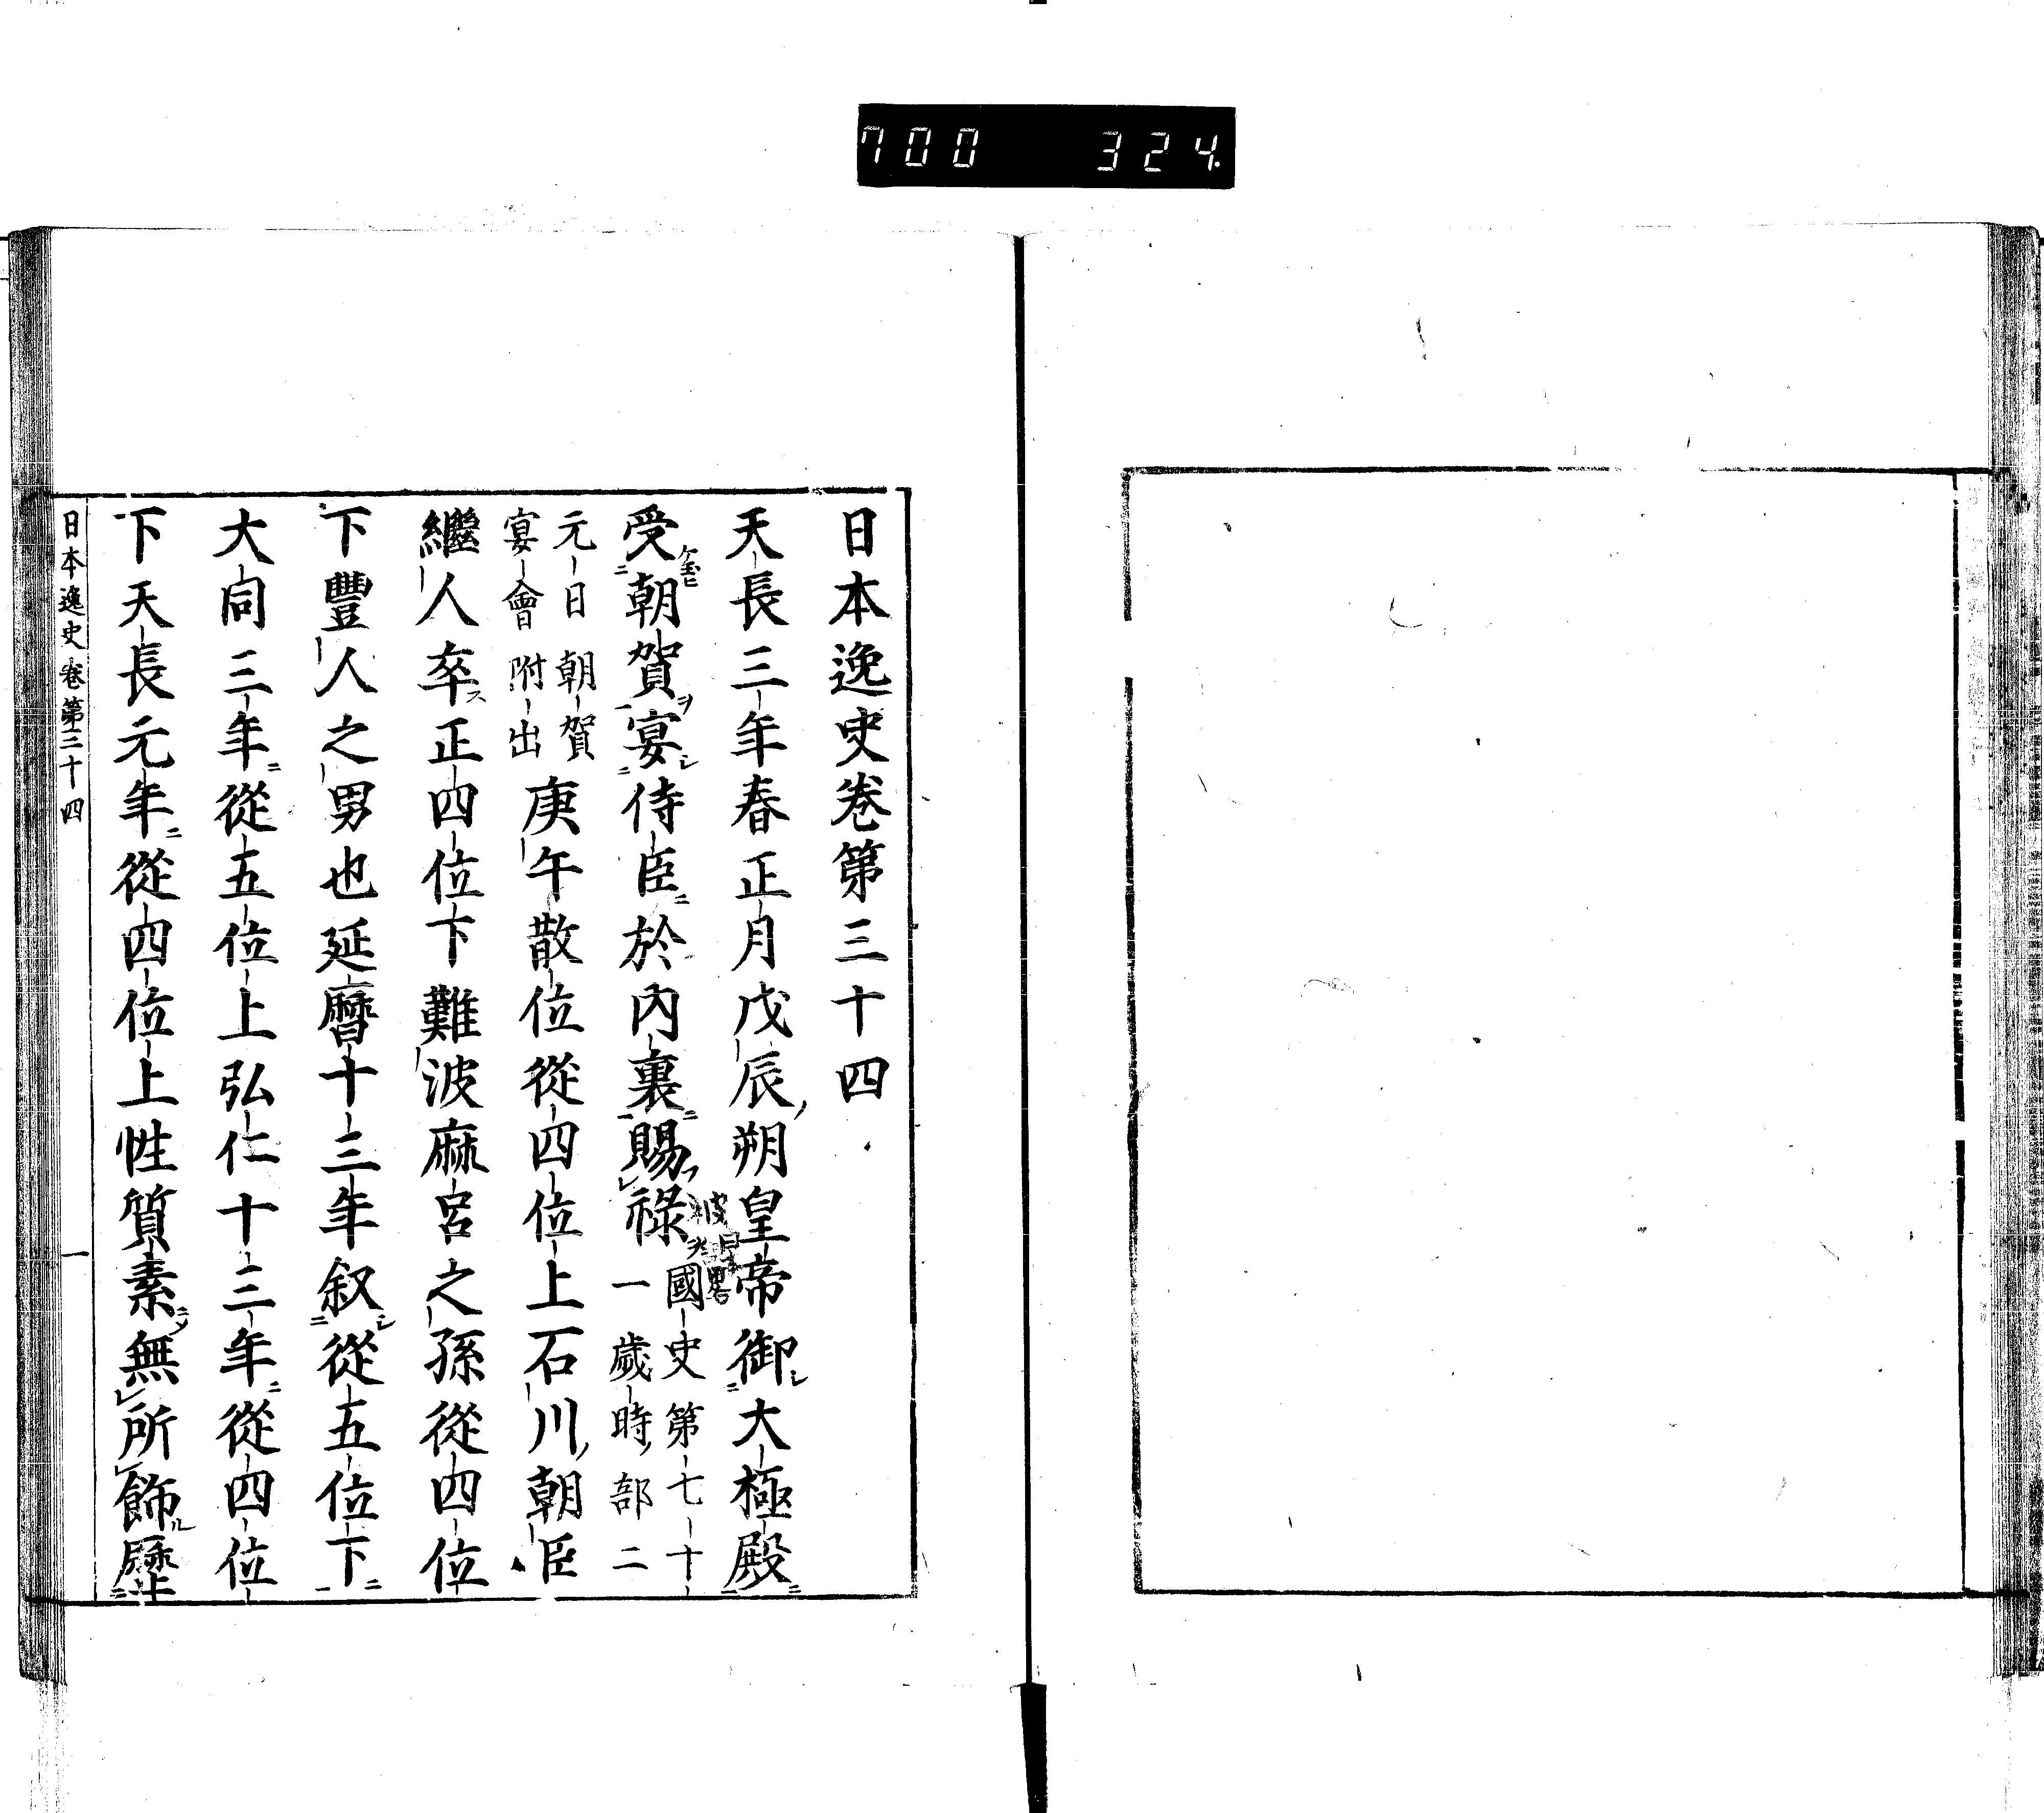 700 324.
日本逸史卷第三十四
天長三年春正月戊辰朔皇帝御大極殿
受朝賀宴侍臣於內裏賜祿
國史第七十
一歲時部二
元日朝賀
宴會附出
庚午散位從四位上石川朝臣
繼人卒正四位下難波麻呂之孫從四位
下豐人之男也延曆十三年叙從五位下
大同三年從五位上弘仁十三年從四位
下天長元年從四位上性質素無所飾歷
日本逸史卷第三十四
一